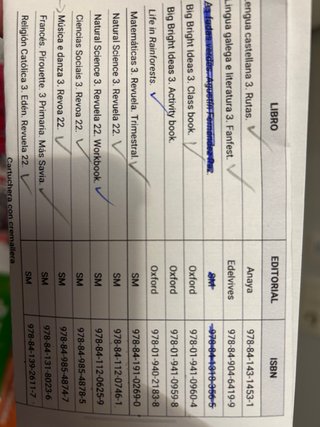 LIBRO EDITORIAL ISBN
engua castellana 3. Rutas. Anaya 978-84-143-1453-1
Lingua galega e literatura 3. Fanfest. Edelvives 978-84-904-6419-9
As fadas verdes. Agustín Fernández Paz. SM
Big Bright Ideas 3. Class book. Oxford 978-01-941-0960-4
Big Bright Ideas 3. Activity book. Oxford 978-01-941-0959-8
Life in Rainforests Oxford 978-01-940-2183-8
Matemáticas 3. Revuela. Trimestral. SM 978-84-191-0269-0
Natural Science 3. Revuela 22. SM 978-84-112-0746-1
Natural Science 3. Revuela 22. Workbook. SM 978-84-112-0625-9
Ciencias Sociais 3. Revoa 22. SM 978-84-985-4878-5
Música e danza 3. Revoa 22. SM 978-84-985-4874-7
Francés. Pirouette. 3 Primaria. Más Savia. SM 978-84-131-8023-6
Religión Católica 3. Edén. Revuela 22 SM 978-84-139-2611-7
Cartuchera con cremallera